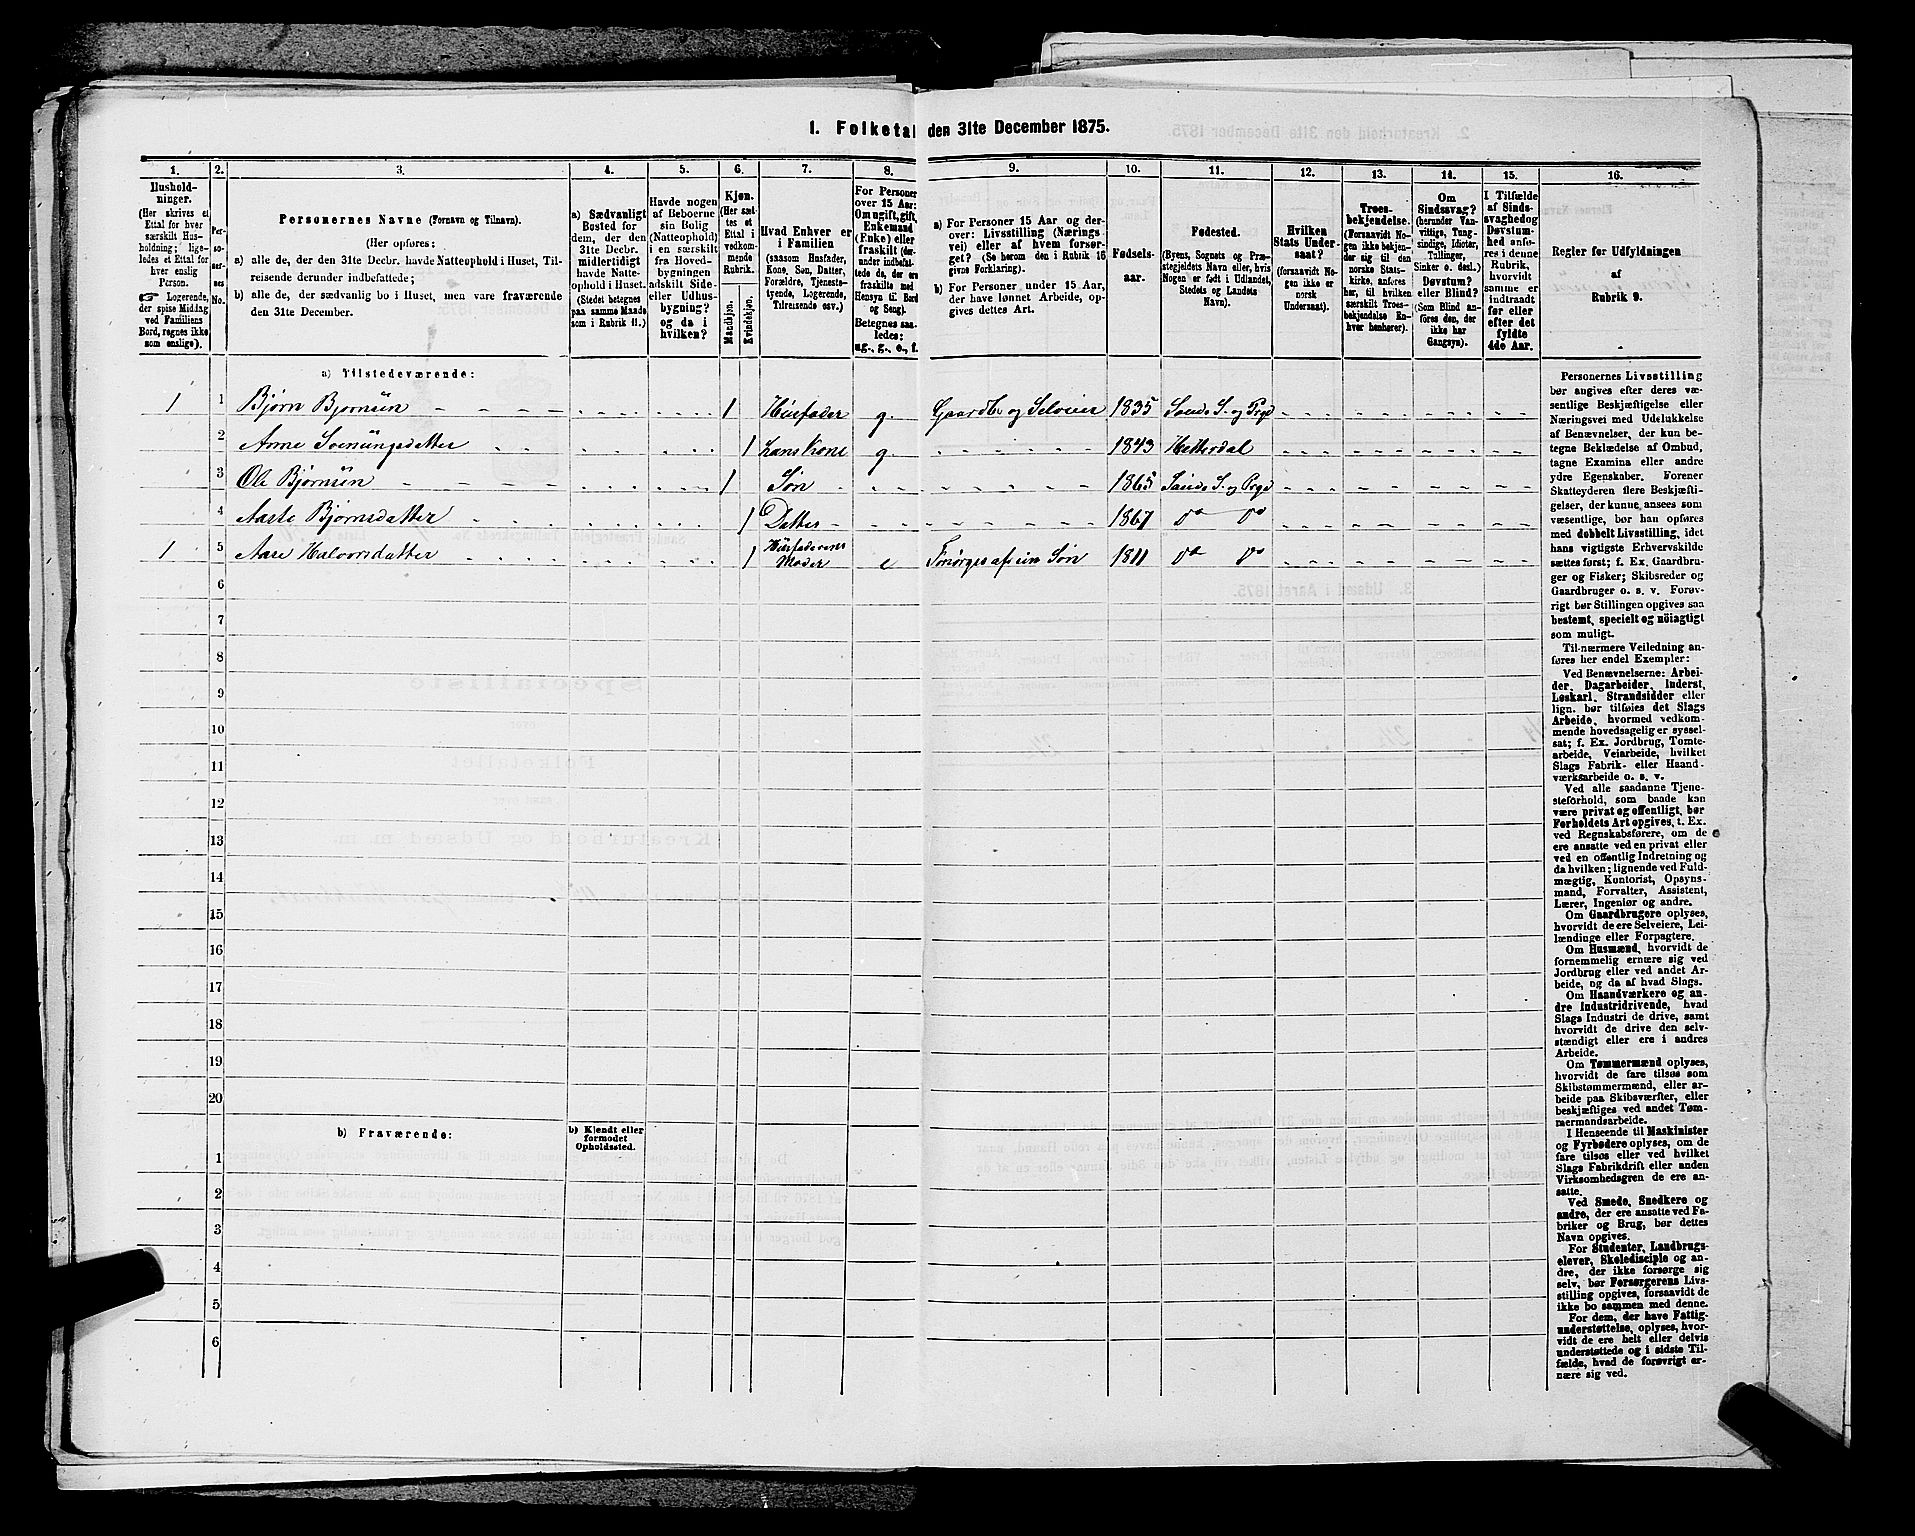 1. Folketal den 31te December 1875.
1. 2. 3. 4. 5. 6. 7. 8. 9. 10. 11. 12. 13. 14. 15. 16.
Hushold-
ninger.
(Her skrives et
Ettal for hver
særskilt Hus-
holdning; lige-
ledes et Ettal for
hver enslig
Person.
☞ Logerende,
der spise Middag
ved Familiens
Bord, regnes ikke
som enslige).
Per-
so-
ner-
nes
No.
Personernes Navne (Fornavn og Tilnavn).
(Her opføres:
a) alle de, der den 31te Decbr. havde Natteophold i Huset, Til-
reisende derunder indbefattede;
b) alle de, der sædvanlig bo i Huset, men vare fraværende
den 31te December.
a) Sædvanligt
Bosted for
dem, der den
31te Decbr.
midlertidigt
havde Natte-
ophold i Huset.
(Stedet betegnes
paa samme Maade
som i Rubrik 11.)
Havde nogen
af Beboerne
sin Bolig
(Natteophold)
i en særskilt
fra Hoved-
bygningen
adskilt Side-
eller Udhus-
bygning?
og da i
hvilken?
Kjøn.
(Her sæt-
tes et
Ettal i
vedkom-
mende
Rubrik.
Mandkjøn.
Kvindekjøn.
Hvad Enhver er
i Familien
(saasom Husfader,
Kone, Søn, Datter,
Forældre, Tjeneste-
tyende, Logerende,
Tilreisende osv.)
For Personer
over 15 Aar:
Om ugift, gift,
Enkemand
(Enke) eller
fraskilt (der-
under indbefat-
tede de, der ere
fraskilte med
Hensyn til Bord
og Seng).
Betegnes saa-
ledes:
ug., g., e., f.
a) For Personer 15 Aar og der-
over: Livsstilling (Nærings-
vei) eller af hvem forsør-
get? (Se herom den i Rubrik 16
givne Forklaring).
b) For Personer under 15 Aar,
der have lønnet Arbeide, op-
gives dettes Art.
Fødsels-
aar.
Fødested.
(Byens, Sognets og Præ-
stegjeldets Navn eller, hvis
Nogen er født i Udlandet,
Stedets og Landets
Navn).
Hvilken
Stats Under-
saat?
(forsaavidt No-
gen ikke er
norsk
Undersaat).
Troes-
bekjendelse.
(Forsaavidt No-
gen ikke bekjen-
der sig til den
norske Stats-
kirke, anføres
her, til hvilken
særskilt Troes-
bekjendelse En-
hver henhører).
Om
Sindssvag?
(herunder Van-
vittige, Tung-
sindige, Idioter,
Tullinger,
Sinker o. desl.)
Døvstum?
eller Blind?
(Som Blind an-
føres den, der
ikke har
Gangsyn).
I Tilfælde
af Sinds-
svaghed og
Døvstum-
hed anfø-
res i denne
Rubrik,
hvorvidt
samme er
indtraadt
før eller
efter det
fyldte
4de Aar.
Regler for Udfyldningen
af
Rubrik 9.
a) Tilstedeværende:
1 1 Bjørn Bjørnsen 1 Husfader g. Gaardbr og Selveier 1835 Sande S. og Prgd
2 Anne Svenungsdatter 1 hans Kone g. 1843 Hitterdal
3 Ole Bjørnsen 1 Søn 1865 Sande S. og Prgd
4 Aaste Bjørnsdatter 1 Datter 1867 do do
1 5 Aase Halvorsdatter 1 Husfaderens Moder e Forsørges af sin Søn 1811 do do
6
7
8
9
10
11
12
13
14
15
16
17
18
19
20
b) Fraværende:
b) Kjendt eller
formodet
Opholdssted.
1
2
3
4
5
6
Personernes Livsstilling
bør angives efter deres væ-
sentlige Beskjæftigelse eller
Næringsvei med Udelukkelse
af Benævnelser, der kun be-
tegne Beklædelse af Ombud,
tagne Examina eller andre
ydre Egenskaber. Forener
Skatteyderen flere Beskjæfti-
gelser, der kunne ansees som
væsentlige, bør han opføres
med dobbelt Livsstilling, idet
hans vigtigste Erhvervskilde
sættes først; f. Ex. Gaardbru-
ger og Fisker; Skibsreder og
Gaardbruger o. s. v. Forøv-
rigt bør Stillingen opgives saa
bestemt, specielt og nöiagtigt
som muligt.
Til nærmere Veiledning an-
føres her endel Exempler:
Ved Benævnelserne: Arbei-
der, Dagarbeider, Inderst,
Løskarl, Strandsidder eller
lign. bør tilføies det Slags
Arbeide, hvormed vedkom-
mende hovedsagelig er syssel-
sat; f. Ex. Jordbrug, Tomte-
arbeide, Veiarbeide, hvilket
Slags Fabrik- eller Haand-
værksarbeide o. s. v.
Ved alle saadanne Tjene-
steforhold, som baade kan
være privat og offentligt, bør
Forholdets Art opgives, t. Ex.
ved Regnskabsførere, om de
ere ansatte ved en privat eller
ved en offentlig Indretning og
da hvilken; lignende ved Fuld-
mægtig, Kontorist, Opsyns-
mand, Forvalter, Assistent,
Lærer, Ingeniør og andre.
Om Gaardbrugere oplyses,
hvorvidt de ere Selveiere, Lei-
lændinge eller Forpagtere.
Om Husmænd, hvorvidt de
fornemmelig ernære sig ved
Jordbrug eller ved andet Ar-
beide, og da af hvad Slags.
Om Haandværkere og an-
dre Industridrivende, hvad
Slags Industri de drive, samt
hvorvidt de drive den selv-
stændigt eller ere i andres
Arbeide.
Om Tømmermænd oplyses,
hvorvidt de fare tilsøs som
Skibstømmermænd, eller ar-
beide paa Skibsværfter, eller
beskjæftiges ved andet Tøm-
mermandsarbeide.
I Henseende til Maskinister
og Fyrbødere oplyses, om de
fare tilsøs eller ved hvilket
Slags Fabrikdrift eller anden
Virksomhedsgren de ere an-
satte.
Ved Smede, Snedkere og
andre, der ere ansatte ved Fa-
briker og Brug, bør dettes
Navn opgives.
For Studenter, Landbrugs-
elever, Skoledisciple og an-
dre, der ikke forsørge sig
selv, bør Forsørgerens Livs-
stilling opgives, forsaavidt de
ikke bo sammen med denne.
For dem, der have Fattig-
understøttelse, oplyses, hvor-
vidt de ere helt eller delvis
understøttede og i sidste Til-
fælde, hvad de forøvrigt er-
nære sig ved.